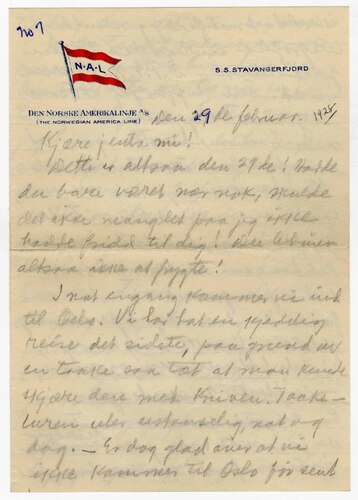 No 7
N·A·L
S.S. STAVANGERFJORD
DEN NORSKE AMERIKALINJE A/S
(THE NORWEGIAN AMERICA LINE)
Den 29 de februar.
1928
Kjære jenta mi!
Dette er altsaa den 29de! Hadde
du bare været nær nok, skulde
det ikke manglet paa jeg ikke
hadde fridd til dig! Du behøver
altsaa ikke at frygte!
I nat engang kommer vi ind
til Oslo. Vi har hat en kjedelig
reise det sidste, paa grund av
en taake saa tæt at man kunde
skjære den med kniven. Taake-
luren uler ustanselig, nat og
dag. — Er dog glad over at vi
ikke kommer til Oslo før sent